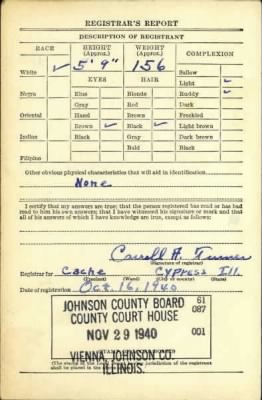 REGISTRAR'S REPORT
DESCRIPTION OF REGISTRANT
RACE HEIGHT (Approx.) WEIGHT (Approx.) COMPLEXION
White ✓ 5' 9" 156 Sallow
Light ✓
EYES HAIR Ruddy ✓
Negro Blue Blonde Dark
Gray Red Freckled
Oriental Hazel Brown Light brown
Brown ✓ Black ✓ Dark brown
Indian Black Gray Black
Bald
Filipino
Other obvious physical characteristics that will aid in identification
None
I certify that my answers are true; that the person registered has read or has had
read to him his own answers; that I have witnessed his signature or mark and that
all of his answers of which I have knowledge are true, except as follows:
Carroll A.
(Signature of registrar)
Registrar for Cache Cypress Ill.
(Precinct) (Ward) (City or county) (State)
Date of registration Oct. 16, 1940
JOHNSON COUNTY BOARD 61
COUNTY COURT HOUSE 087
NOV 29 1940 001
VIENNA, JOHNSON CO.
ILLINOIS.
(The stamp of the Local Board having jurisdiction of the registrant
shall be placed in the above space.)